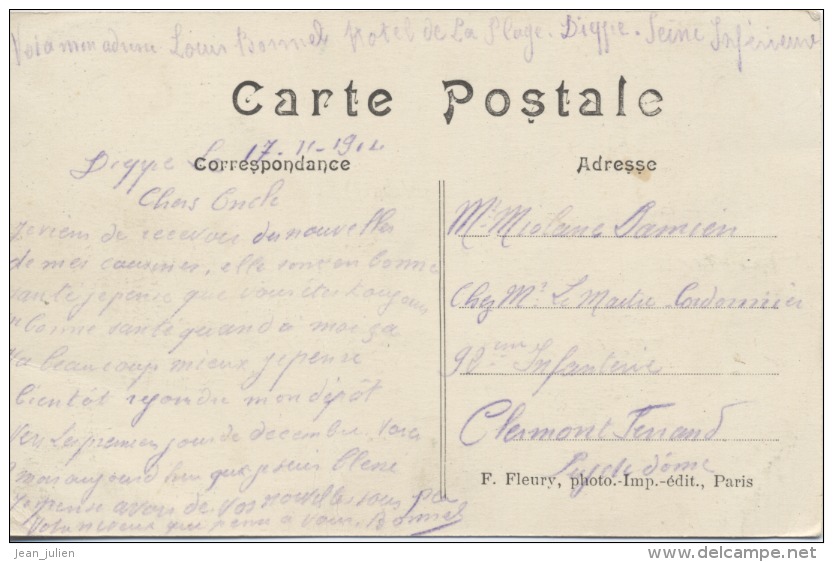 Voia mon adresse Louis Bonnel Hotel de La Plage. Dieppe. Seine Inférieure
Carte Postale
Dieppe Le 17-11-191
Correspondance
Adresse
Chers Oncle
je viens de recevoir du nouvelles
de mes cousines, elle sont en bonne
sante je pense que vous etes toujours
bonne santé quand à moi ça
va beaucoup mieux je pense
bientôt rejondre mon dépôt
vers les premier jours de decembre.
mois aujourd hui que je suis blesse
Je pense avoir de vos nouvelles sous peu
Votre neveux que pense a vous. Bonnel
Mr Miolane Damien
Chez Mr Le Maitre Cordonnier
92ème Infanterie
Clermont Ferrand
Puy de dôme
F. Fleury, photo.-Imp.-édit., Paris
jean_julien
www.delcampe.net